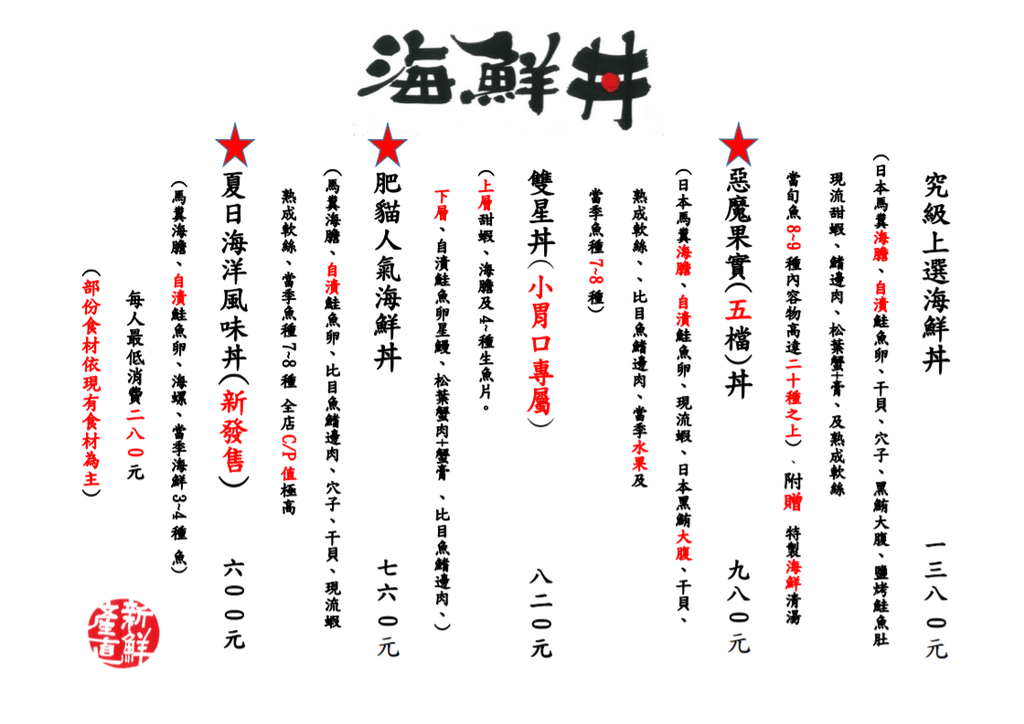 海鮮丼
究級上選海鮮丼 一三八０元
(日本馬糞海膽、自漬鮭魚卵、干貝、穴子、黑鮪大腹、鹽烤鮭魚肚
現流甜蝦、鰭邊肉、松葉蟹+膏、及熟成軟絲
當旬魚 8~9 種內容物高達二十種之上)、附贈 特製海鮮清湯
惡魔果實(五檔)丼 九八０元
(日本馬糞海膽、自漬鮭魚卵、現流蝦、日本黑鮪大腹、干貝、
熟成軟絲、、比目魚鰭邊肉、當季水果及
當季魚種 7~8 種)
雙星丼(小胃口專屬) 八二０元
(上層甜蝦、海膽及 4~種生魚片。
下層、自漬鮭魚卵星鰻、松葉蟹肉+蟹膏 、比目魚鰭邊肉、)
肥貓人氣海鮮丼 七六０元
(馬糞海膽、自漬鮭魚卵、比目魚鰭邊肉、穴子、干貝、現流蝦
熟成軟絲、當季魚種 7~8 種 全店 C/P 值極高
夏日海洋風味丼(新發售) 六００元
(馬糞海膽、自漬鮭魚卵、海螺、當季海鮮 3~4 種 魚)
每人最低消費二八０元
(部份食材依現有食材為主)
新鮮
產直